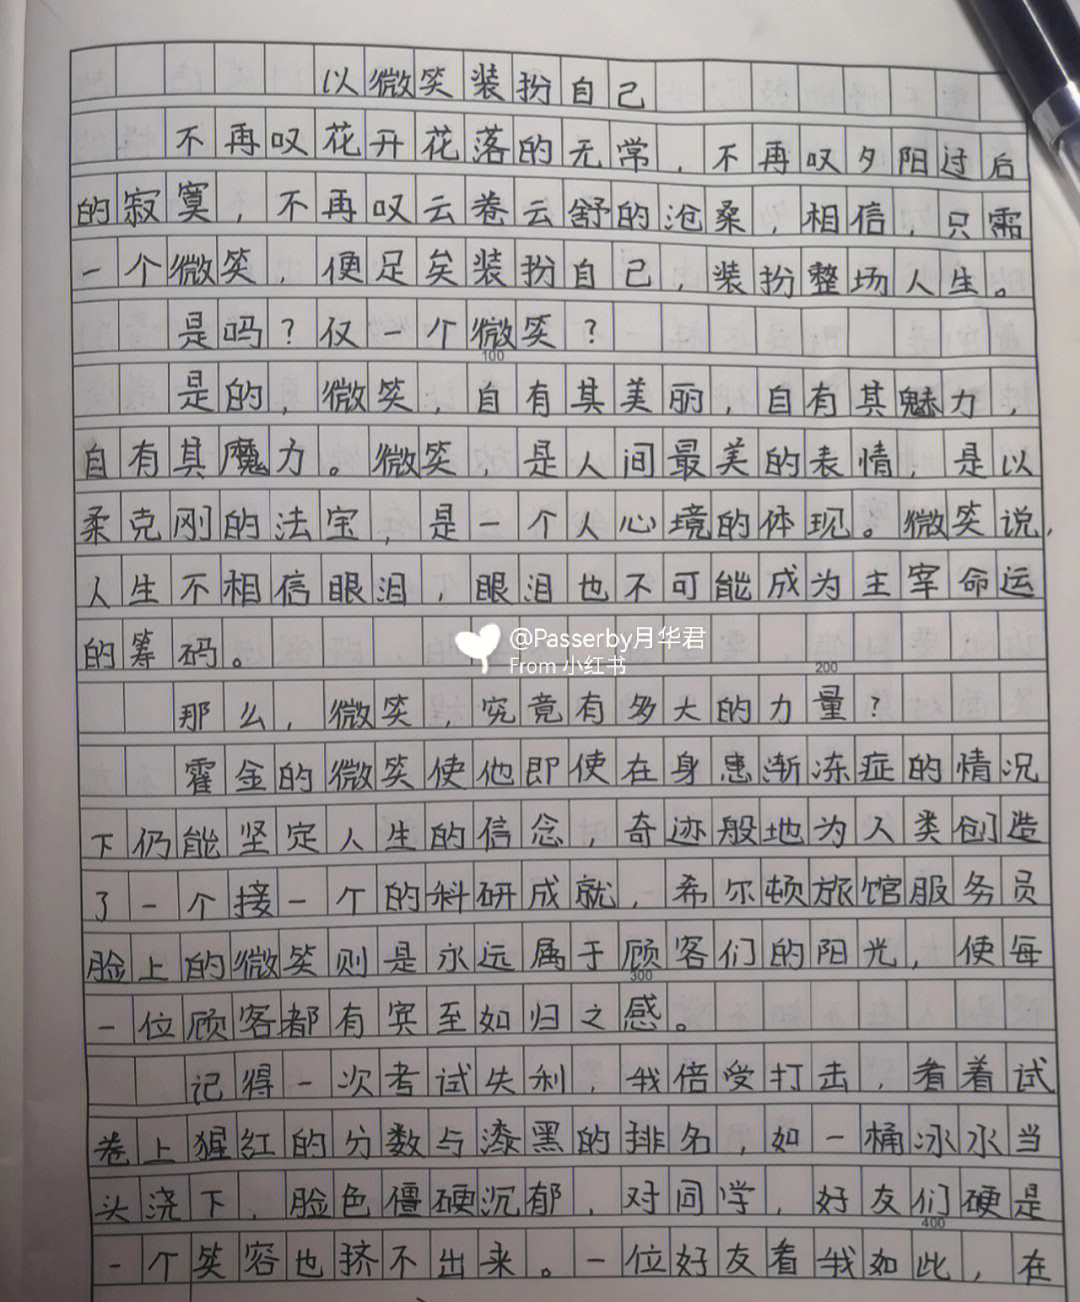 以微笑装扮自己
不再叹花开花落的无常，不再叹夕阳过后
的寂寞，不再叹云卷云舒的沧桑，相信，只需
一个微笑，便足矣装扮自己，装扮整场人生。
是吗？仅一个微笑？
100
是的，微笑，自有其美丽，自有其魅力，
自有其魔力。微笑，是人间最美的表情，是以
柔克刚的法宝，是一个人心境的体现。微笑说，
人生不相信眼泪，眼泪也不可能成为主宰命运
的筹码。
@Passerby月华君
From 小红书
200
那么，微笑，究竟有多大的力量？
霍金的微笑使他即使在身患渐冻症的情况
下仍能坚定人生的信念，奇迹般地为人类创造
了一个接一个的科研成就，希尔顿旅馆服务员
脸上的微笑则是永远属于顾客们的阳光，使每
300
一位顾客都有宾至如归之感。
记得一次考试失利，我倍受打击，看着试
卷上猩红的分数与漆黑的排名，如一桶冰水当
头浇下，脸色僵硬沉郁，对同学，好友们硬是
400
一个笑容也挤不出来。一位好友看我如此，在